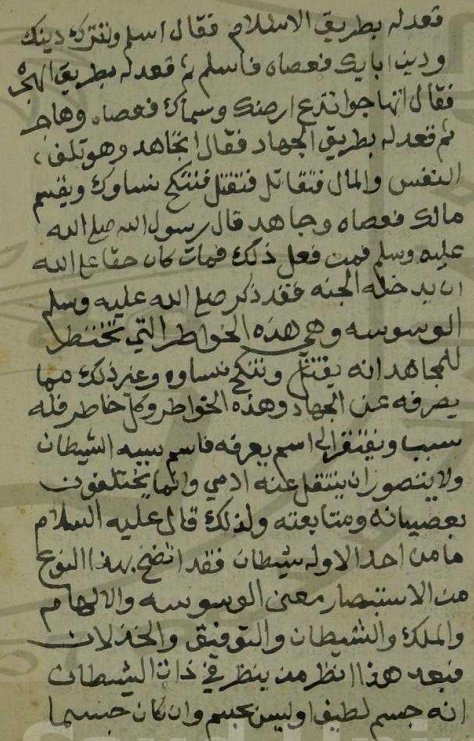 فقعد له بطريق الاسلام فقال اسلم وتترك دينك
ودين ابايك فعصاه فاسلم ثم قعد له بطريق الهجره
فقال اتهاجر اتدع ارضك وسماك فعصاه وهاجر
ثم قعد له بطريق الجهاد فقال اتجاهد وهو تلف
النفس والمال فتقاتل فتقتل فتنكح نساوك ويقسم
مالك فعصاه وجاهد قال رسول الله صلى الله
عليه وسلم فمن فعل ذلك فمات كان حقا على الله
ان يدخله الجنه فقد ذكر صلى الله عليه وسلم
الوسوسه وهي هذه الخواطر التي تخطر
للمجاهد انه يقتل وتنكح نساوه وغير ذلك مما
يصرفه عن الجهاد وهذه الخواطر وكل خاطر فله
سبب ويفتقر الى اسم يعرفه فاسم سببه الشيطان
ولا يتصور ان ينتقل عنه ادمي وانما يختلفون
بعصيانه ومتابعته ولذلك قال عليه السلام
ما من احد الا وله شيطان فقد اتضح بهذا النوع
من الاستبصار معنى الوسوسه والالهام
والملك والشيطان والتوفيق والخذلان
فبعد هذا انظر من ينظر في ذات الشيطان
انه جسم لطيف او ليس بجسم وان كان جسما